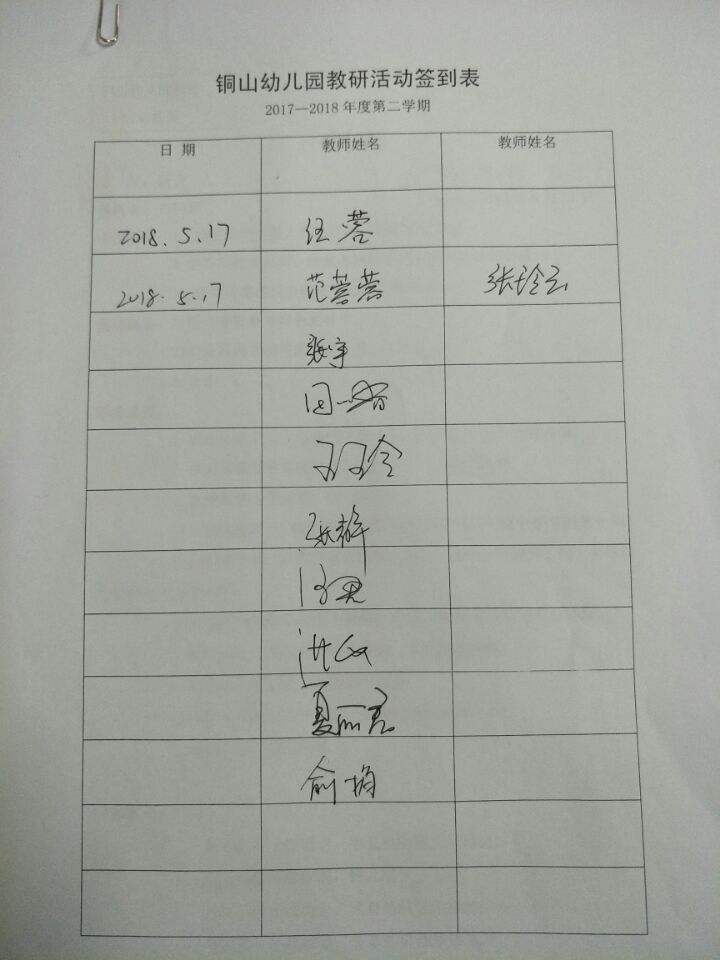 铜山幼儿园教研活动签到表
2017—2018 年度第二学期
日 期 教师姓名 教师姓名
2018.5.17 汪蓉
2018.5.17 范蓉蓉 张玲云
张宇
王玲
张辉
夏丽君
俞梅